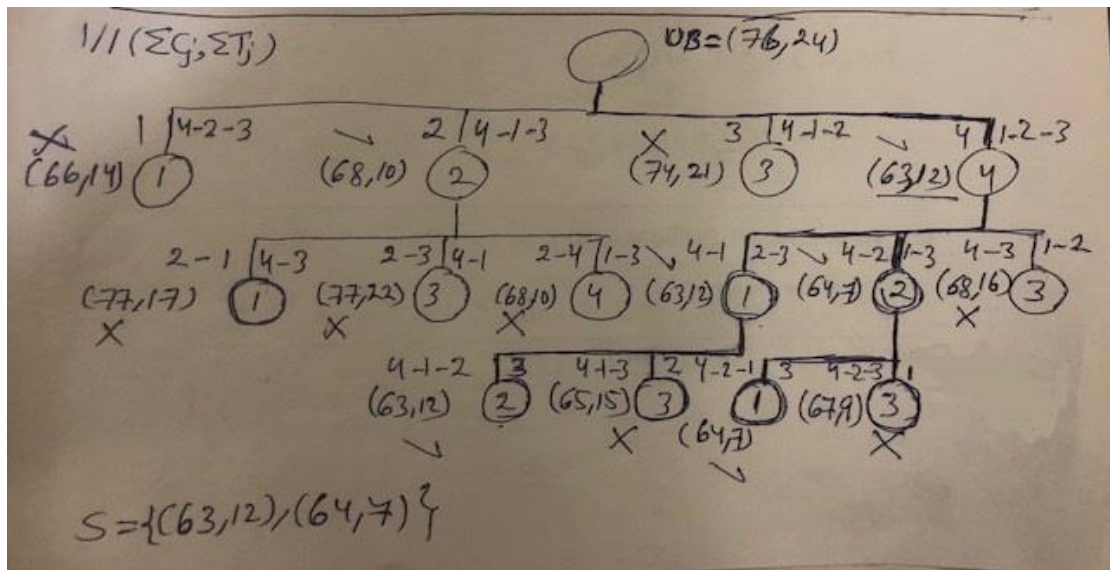 1//1 (ΣCj, ΣTj) UB=(76,24)
1 4-2-3 2 4-1-3 3 4-1-2 4 1-2-3
(66,14) 1 (68,10) 2 (74,21) 3 (63,12) 4
2-1 4-3 2-3 4-1 2-4 1-3 4-1 2-3 4-2 1-3 4-3 1-2
(77,17) 1 (77,22) 3 (68,10) 4 (63,12) 1 (64,7) 2 (68,16) 3
4-1-2 3 4-1-3 2 4-2-1 3 4-2-3 1
(63,12) 2 (65,15) 3 (64,7) 1 (67,9) 3
S={(63,12),(64,7)}